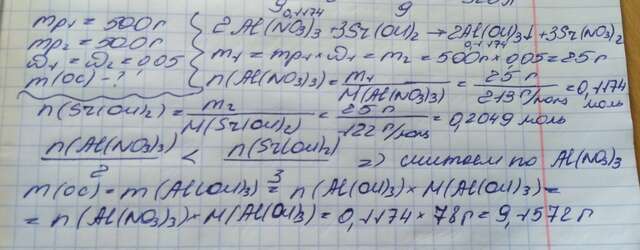 9
mр₁ = 500г
mр₂ = 500г
ω₁ = ω₂ = 0,05
m(ос) - ?
0,1174
2Al(NO₃)₃ + 3Sr(OH)₂ → 2Al(OH)₃↓ + 3Sr(NO₃)₂
0,1174
m₁ = mр₁ × ω₁ = m₂ = 500г × 0,05 = 25г
n(Al(NO₃)₃) = m₁ / M(Al(NO₃)₃) = 25 г / 213 г/моль = 0,1174 моль
n(Sr(OH)₂) = m₂ / M(Sr(OH)₂) = 25 г / 122 г/моль = 0,2049 моль
n(Al(NO₃)₃) / 2 < n(Sr(OH)₂) / 3 => считаем по Al(NO₃)₃
m(ос) = m(Al(OH)₃) = n(Al(OH)₃) × M(Al(OH)₃) =
= n(Al(NO₃)₃) × M(Al(OH)₃) = 0,1174 × 78г = 9,1572г